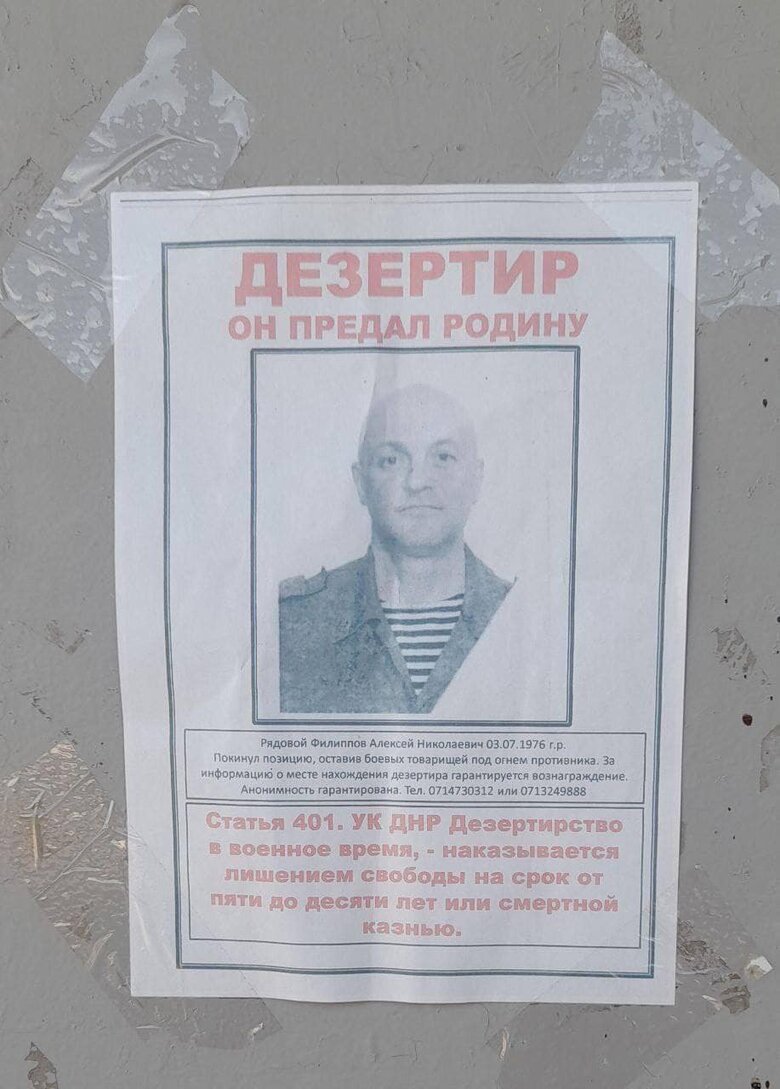 ДЕЗЕРТИР
ОН ПРЕДАЛ РОДИНУ
Рядовой Филиппов Алексей Николаевич 03.07.1976 г.р.
Покинул позицию, оставив боевых товарищей под огнем противника. За
информацию о месте нахождения дезертира гарантируется вознаграждение.
Анонимность гарантирована. Тел. 0714730312 или 0713249888
Статья 401. УК ДНР Дезертирство
в военное время, - наказывается
лишением свободы на срок от
пяти до десяти лет или смертной
казнью.